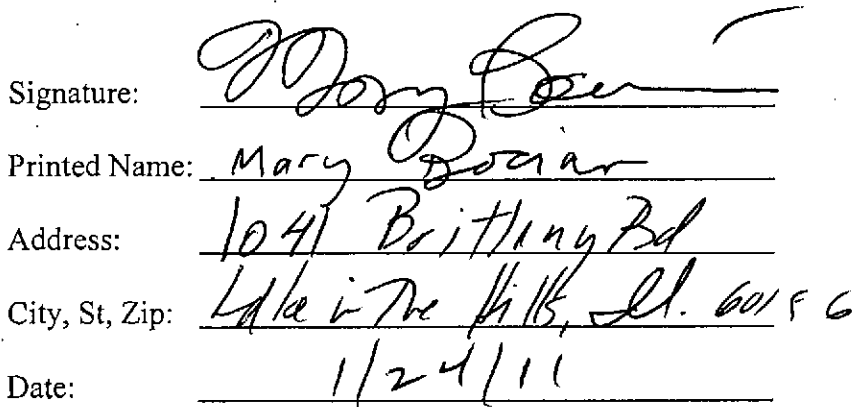 Signature: Mary Bocian
Printed Name: Mary Bocian
Address: 1041 Brittany Rd
City, St, Zip: Lake in The Hills, Il. 60156
Date: 1/24/11